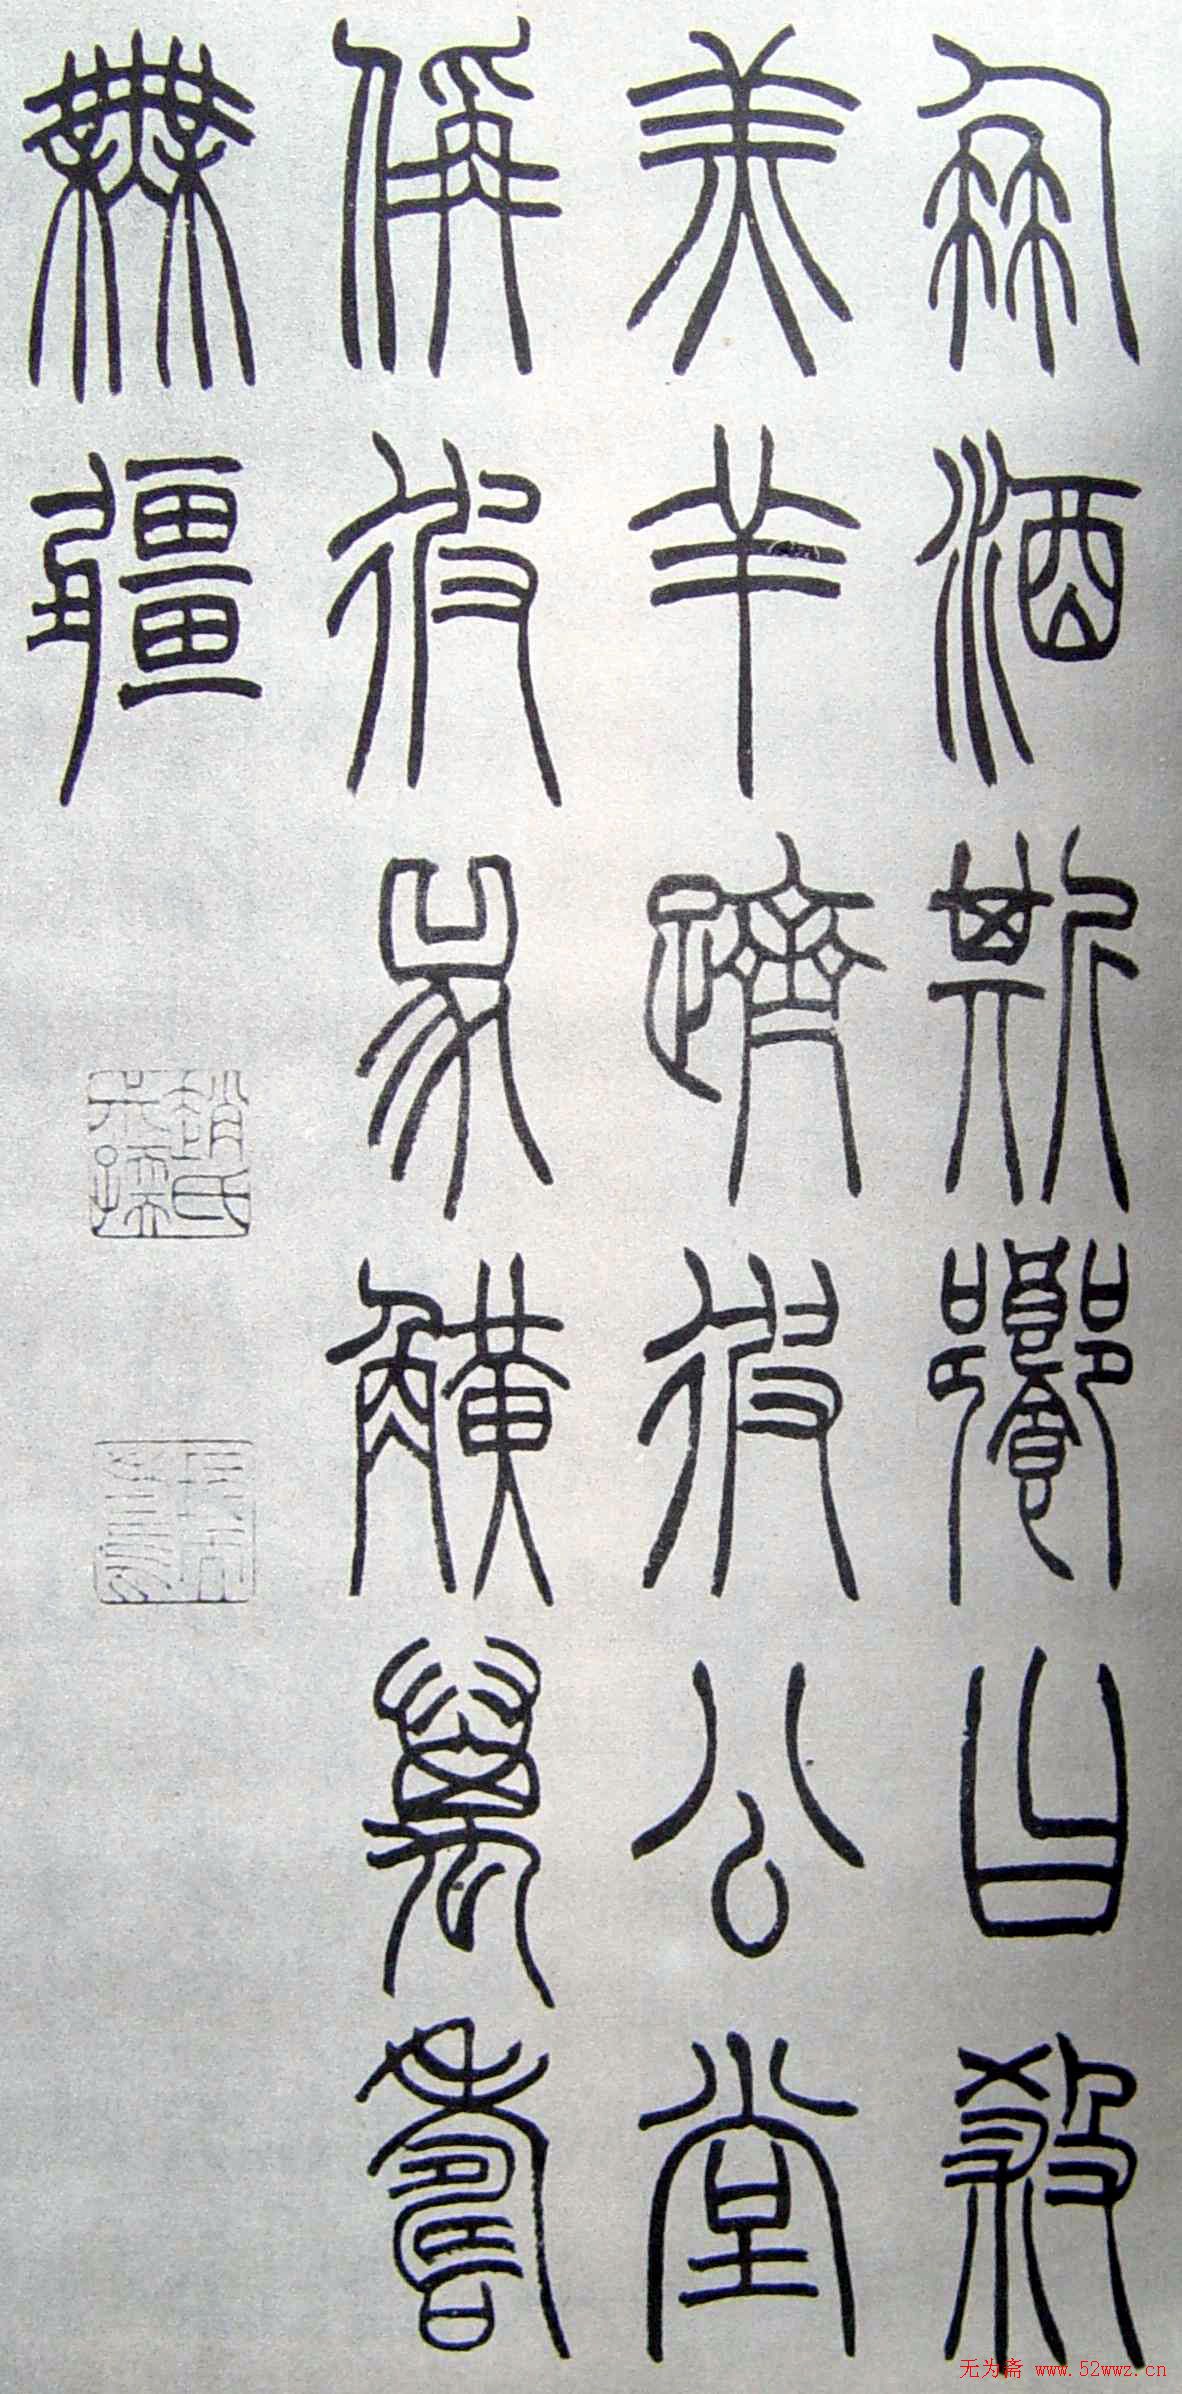 朋酒斯饗曰殺
羔羊躋彼公堂
偁彼兕觵萬壽
無疆
无为斋 www.52wwz.cn